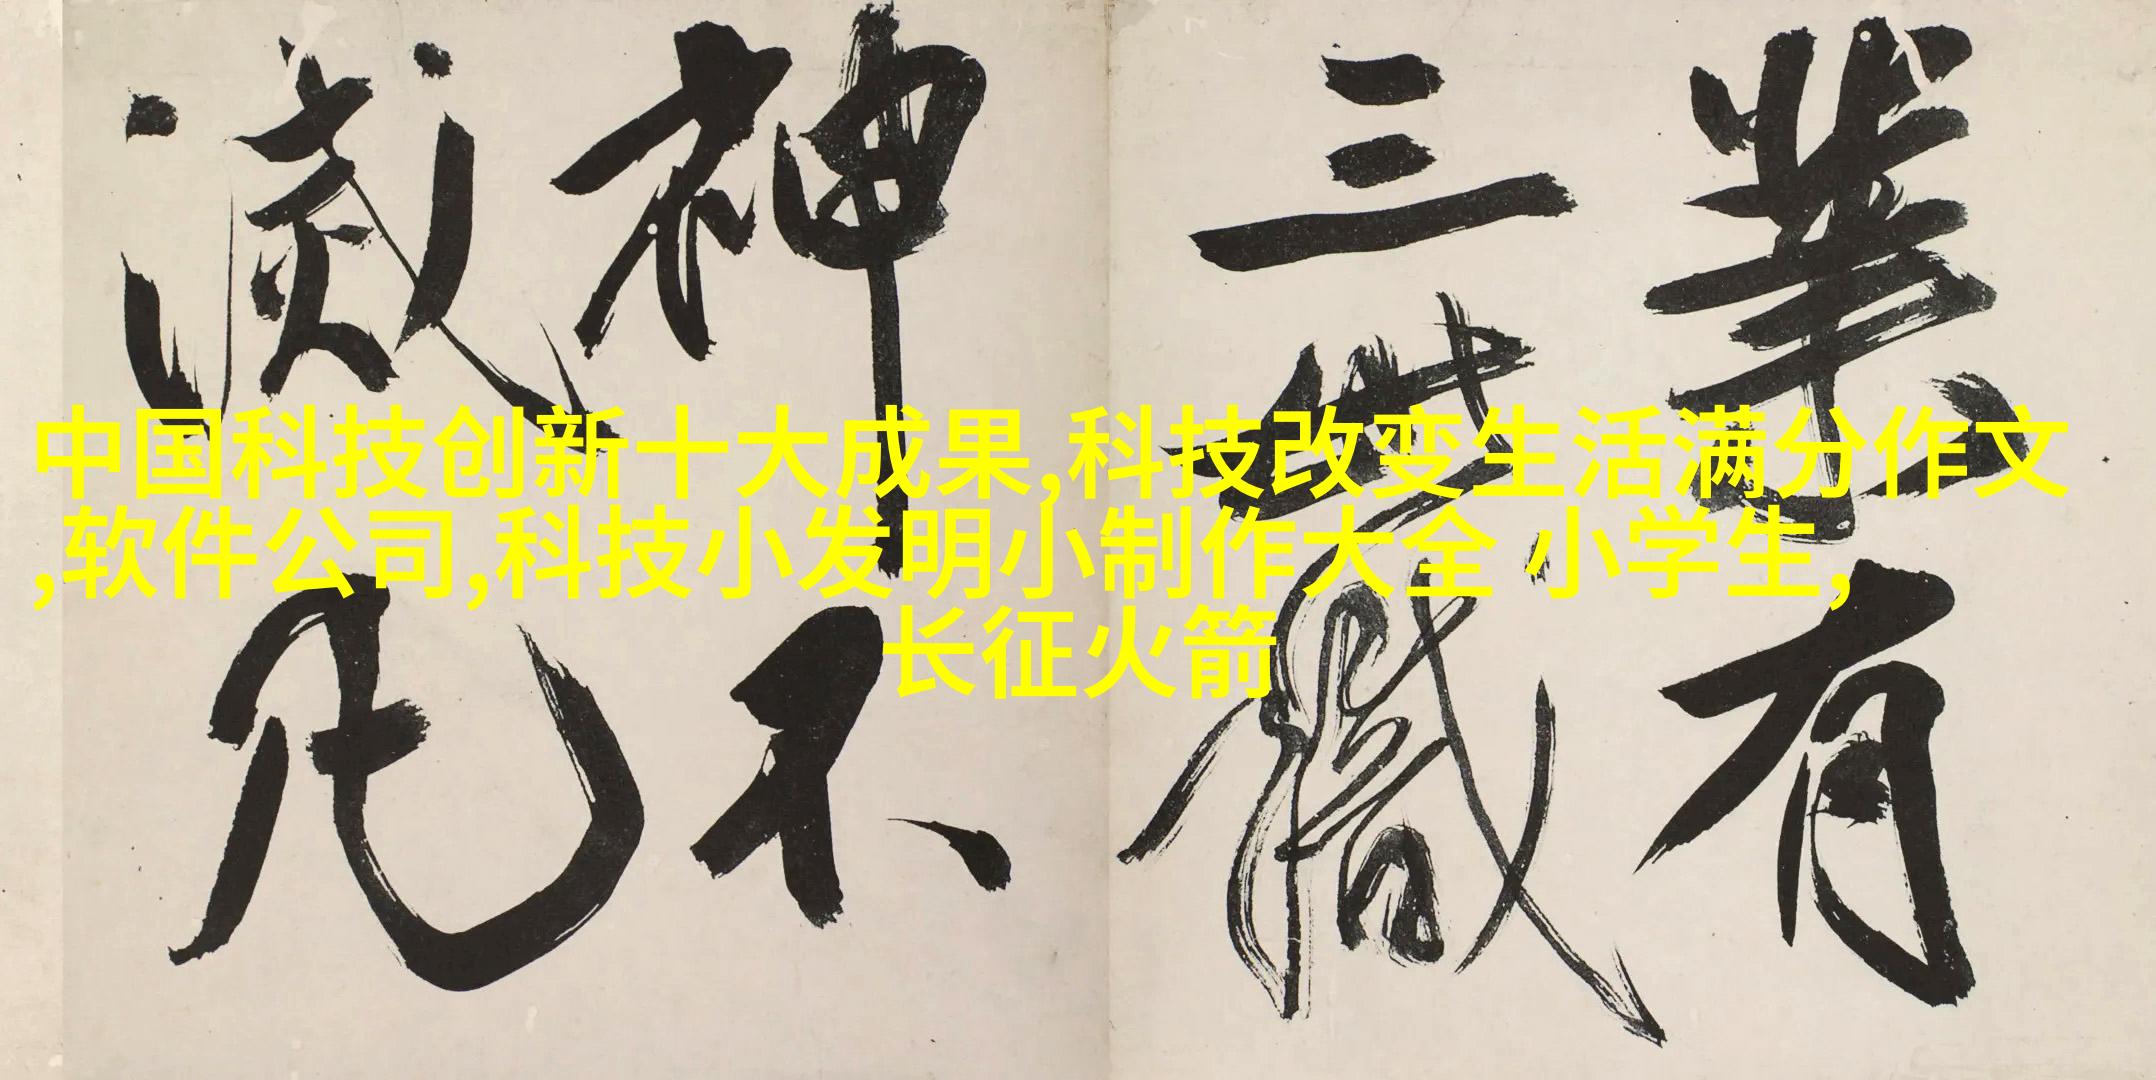 中国科技创新十大成果,科技改变生活满分作文
,软件公司,科技小发明小制作大全 小学生,
长征火箭
業有
三世
神不
滅